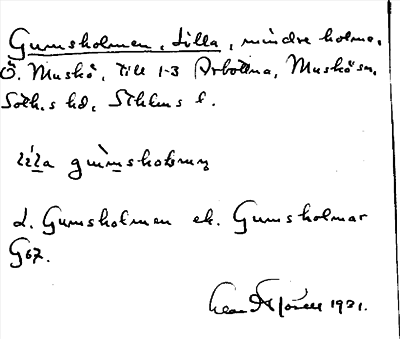 Gumsholmen, Lilla, mindre holme,
Ö. Muskö, till 1-3 Arbottna, Muskö sn,
Soth.s hd, Sthlms l.
lilla gumsholmen
L. Gumsholmen ek. Gumsholmar
G67.
1931.